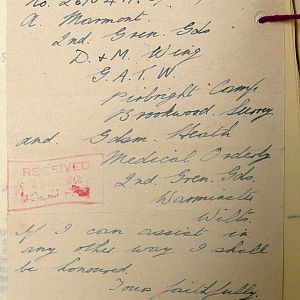 No.
A. Marmont
2nd. Gren. Gds
D. & M. Wing
G. A. T. W.
Pirbright Camp
Brookwood, Surrey
and. Gdsm. Heath
Medical Orderly
2nd. Gren. Gds.
Warminster
Wilts.
RECEIVED
If I can assist in
any other way I shall
be honoured.
Yours faithfully,